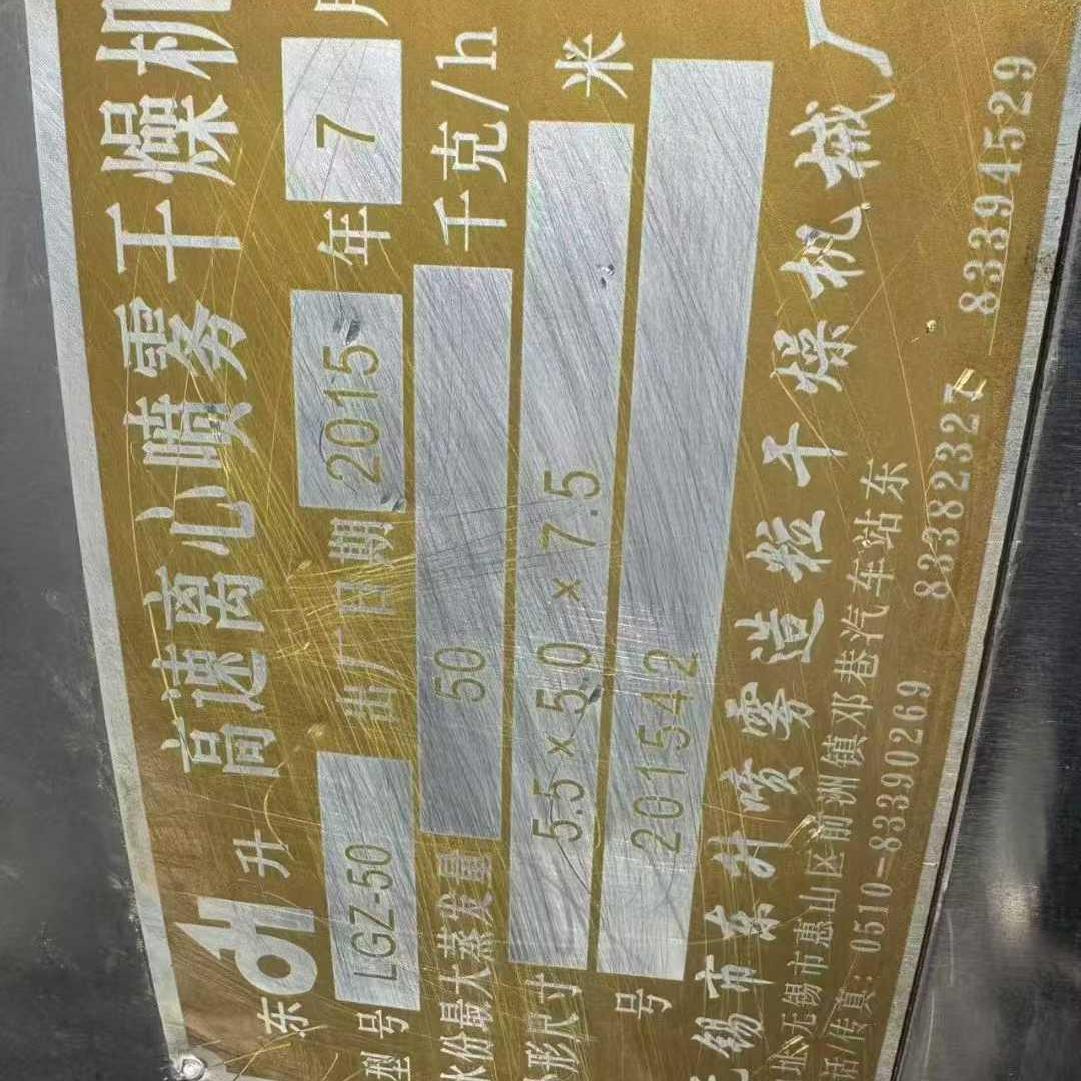 高速离心喷雾干燥机
东升
型号 LGZ-50 出厂日期 2015 年 7 月
水份最大蒸发量 50 千克/h
外形尺寸 5.5×5.0×7.5 米
号 201542
无锡市东升喷雾造粒干燥机械厂
地址:无锡市惠山区前洲镇邓巷汽车站东
电话/传真:0510-83390269 83382327 83394529